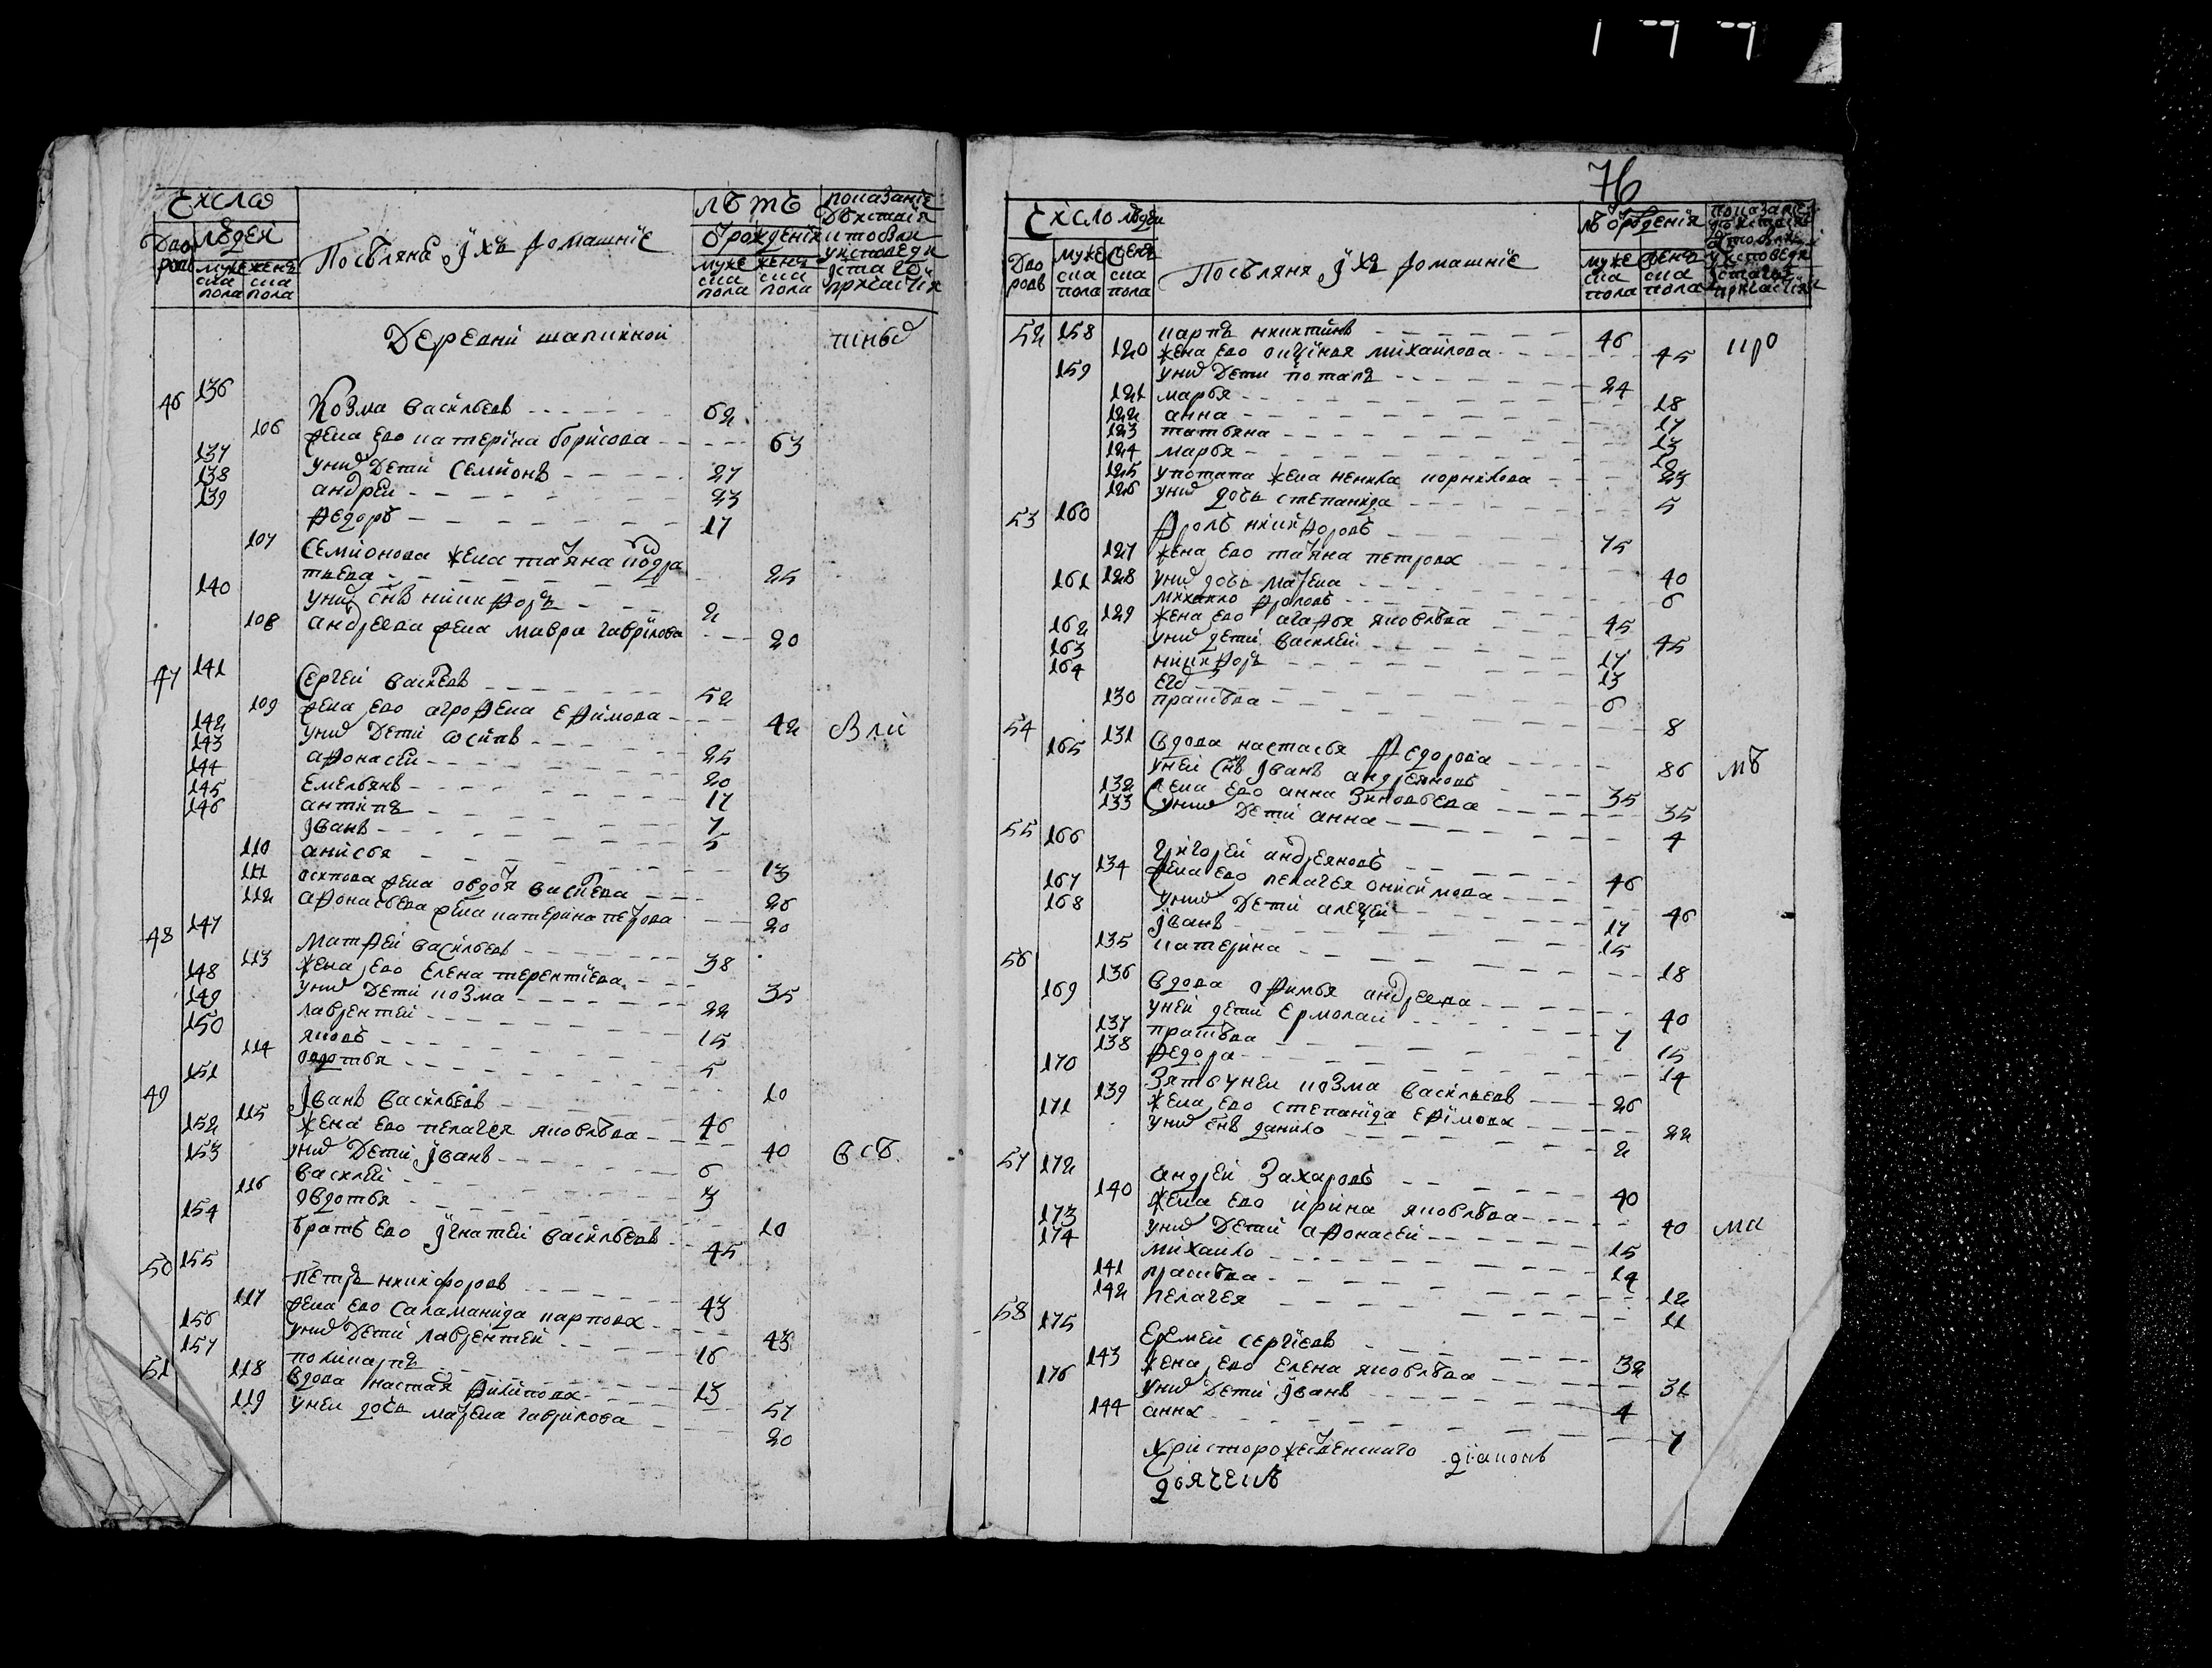 Число
Дво
ровъ
людей
муже
ска
пола
женъ
ска
пола
Посацкия и ихъ домашние
лѣтъ
ѿ рождения
муже
ска
пола
женъ
ска
пола
показание
действия
кто былъ
у исповеди
и святаго
причастия
Деревни шапкиной
46 136 Козма васильевъ 62
106 жена ево катерина борисова 63
137 у нихъ дети семионъ 27
138 андреи 23
139 федоръ 17
107 Семионова жена татьяна кодра
тьева 25
140 у нихъ сынъ никифоръ 2
108 андреева жена мавра гаврилова 20
47 141 Сергеи васильевъ 52
109 жена ево агрофена ефимова 42
142 у нихъ дети осипъ 25
143 афонасеи 20
144 емельянъ 17
145 антипъ 7
146 иванъ 5
110 анисья 13
111 осипова жена овдотья васильева 26
112 афонасьева жена катерина петрова 20
48 147 Матфеи васильевъ 38
113 жена ево елена терентиева 35
148 у нихъ дети козма 22
149 лаврентеи 15
150 яковъ 5
114 овдотья 10
49 151 иванъ васильевъ 46
115 жена ево пелагея яковлева 40
152 у нихъ дети иванъ 6
153 василеи 3
116 овдотья 10
154 братъ ево игнатеи васильевъ 45
50 155 петръ никифоровъ 43
117 жена ево саламанида карпова 43
156 у нихъ дети лаврентеи 16
157 поликарпъ 13
51 118 вдова настасья филипова 57
119 у неи дочь матрена гаврилова 20
76
Число людеи
Дво
ровъ
муже
ска
пола
женъ
ска
пола
Посацкия и ихъ домашние
муже
ска
пола
женъ
ска
пола
52 158 карпъ никитинъ 46
120 жена ево аксинья михаилова 45
159 у нихъ дети потапъ 24
121 марья 18
122 анна 17
123 татьяна 13
124 марья 12
125 у потапа жена ненила корнилова 23
126 у нихъ дочь степанида 5
53 160 фролъ никифоровъ 75
127 жена ево татьяна петрова 40
128 у нихъ дочь матрена 6
161 михаило фроловъ 45
129 жена ево агафья яковлева 45
162 у нихъ дети василеи 17
163 никифоръ 13
164 егоръ 6
130 прасковья 8
54 131 вдова настасья федорова 86
165 у неи сынъ иванъ андреяновъ 35
132 жена ево анна зиновьева 35
133 у нихъ дети анна 4
55 166 григореи андреяновъ 46
134 жена ево пелагея онисимова 46
167 у нихъ дети алексеи 17
168 иванъ 15
135 катерина 18
56 136 вдова офимья андреева 40
169 у неи дети ермолаи 7
137 прасковья 15
138 федора 14
170 зять у неи козма васильевъ 26
139 жена ево степанида ефимова 22
171 у нихъ сынъ данило 2
57 172 андреи захаровъ 40
140 жена ево ирина яковлева 40
173 у нихъ дети афонасеи 15
174 михаило 14
141 прасковья 12
142 пелагея 11
58 175 еремеи сергиевъ 32
143 жена ево елена яковлева 31
176 у нихъ дети иванъ 4
144 анна 7
христорождественскаго диаконъ
дьячекъ